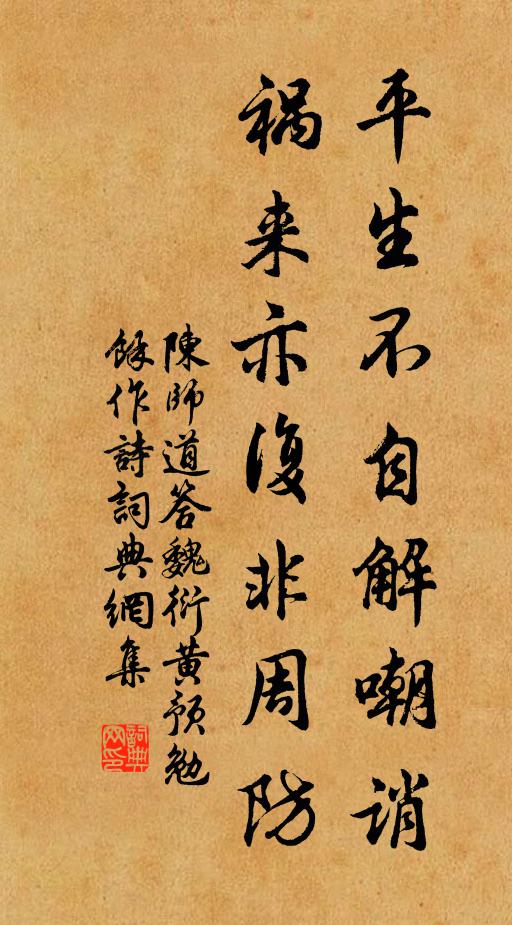 平生不自解嘲誚
祸来亦復非周防
陳師道答魏衍黄預勉
餘作詩詞典網集
詞典網印